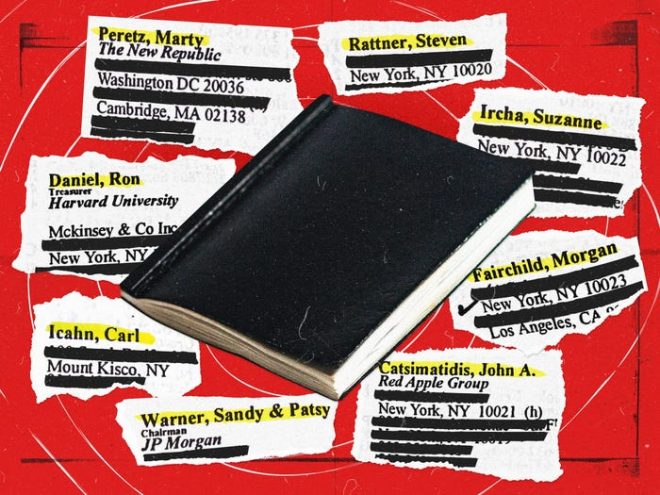 Peretz, Marty
The New Republic
Washington DC 20036
Cambridge, MA 02138
Rattner, Steven
New York, NY 10020
Ircha, Suzanne
New York, NY 10022
Daniel, Ron
Treasurer
Harvard University
Mckinsey & Co Inc
New York, NY
Fairchild, Morgan
New York, NY 10023
Los Angeles, CA
Icahn, Carl
Mount Kisco, NY
Catsimatidis, John A.
Red Apple Group
New York, NY 10021 (h)
Warner, Sandy & Patsy
Chairman
JP Morgan